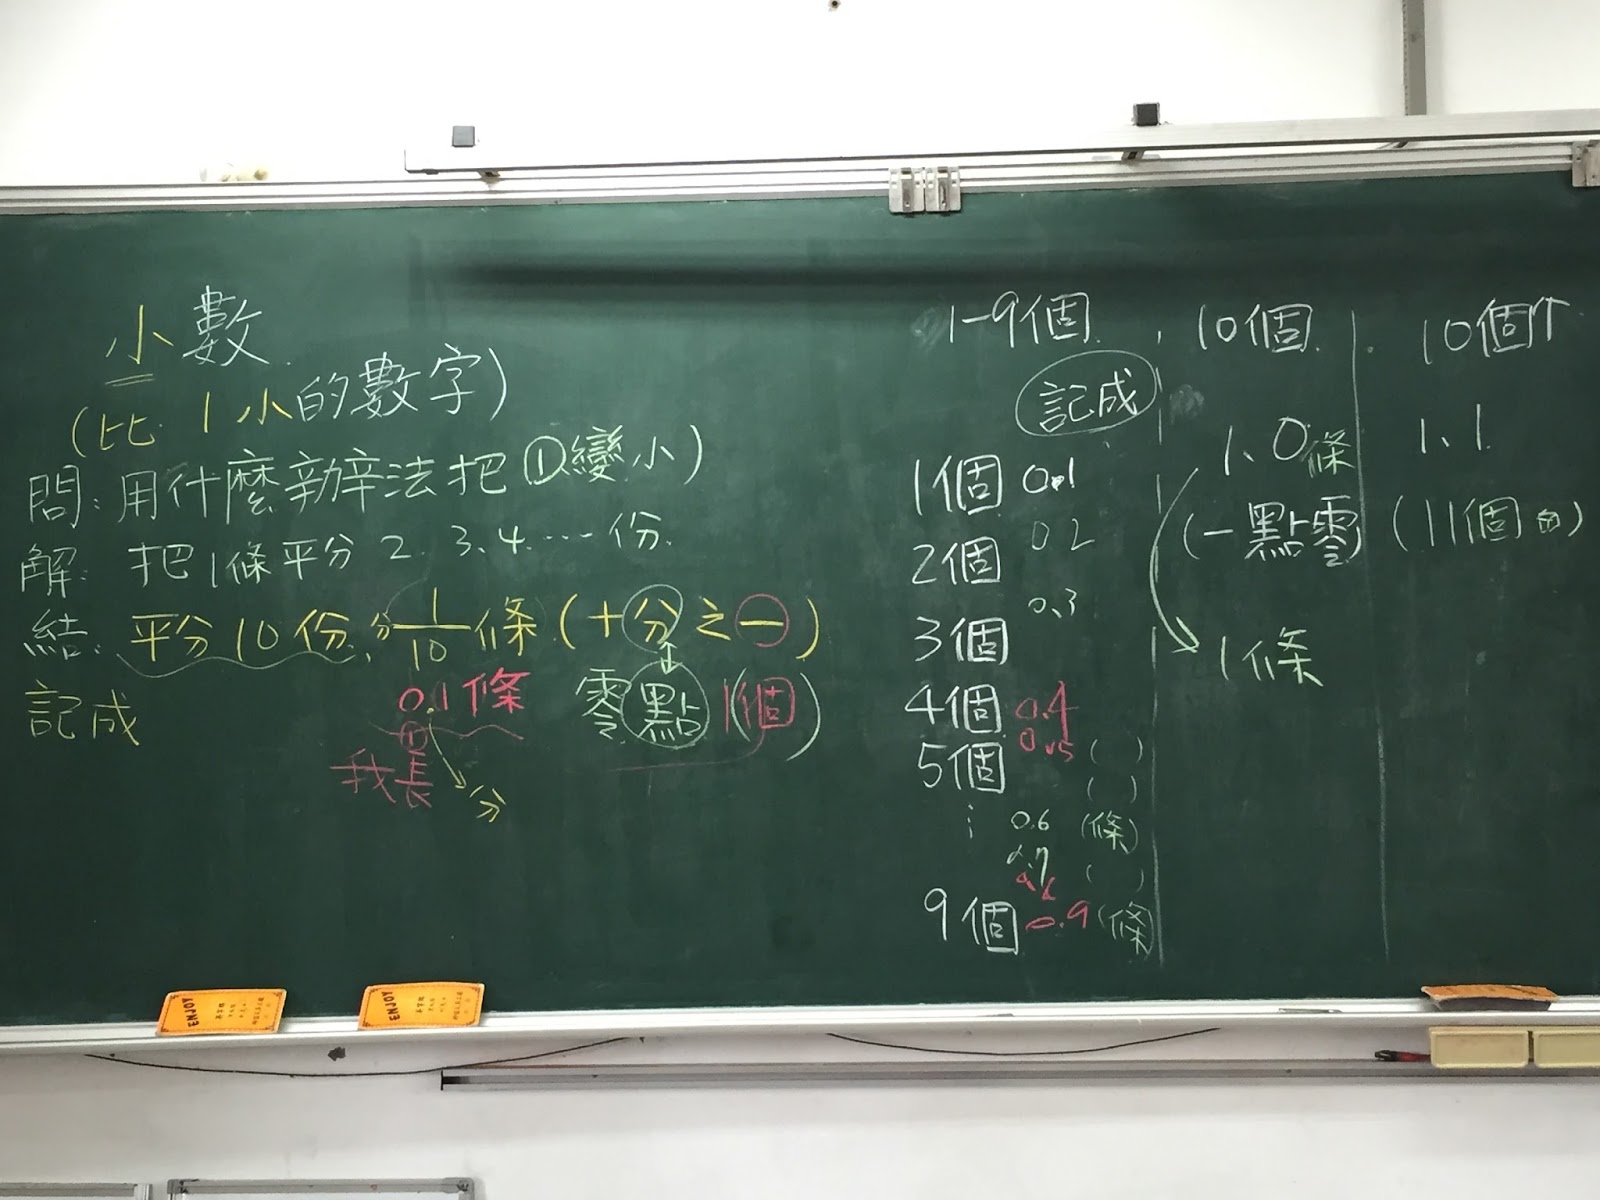 小數
(比 1 小的數字)
問:用什麼辦法把①變小)
解: 把1條平分2、3、4……份
結: 平分10份,分1/10條(十分之一)
記成 0.1條 零點1(個)
我長
分
1-9個
記成
1個 0.1
2個 0.2
3個 0.3
4個 0.4
5個 0.5 ( )
( )
⋮ 0.6 (條)
0.7 ( )
9個 0.9 (條)
10個
1.0條
(一點零)
1條
10個↑
1.1
(11個)
ENJOY
ENJOY